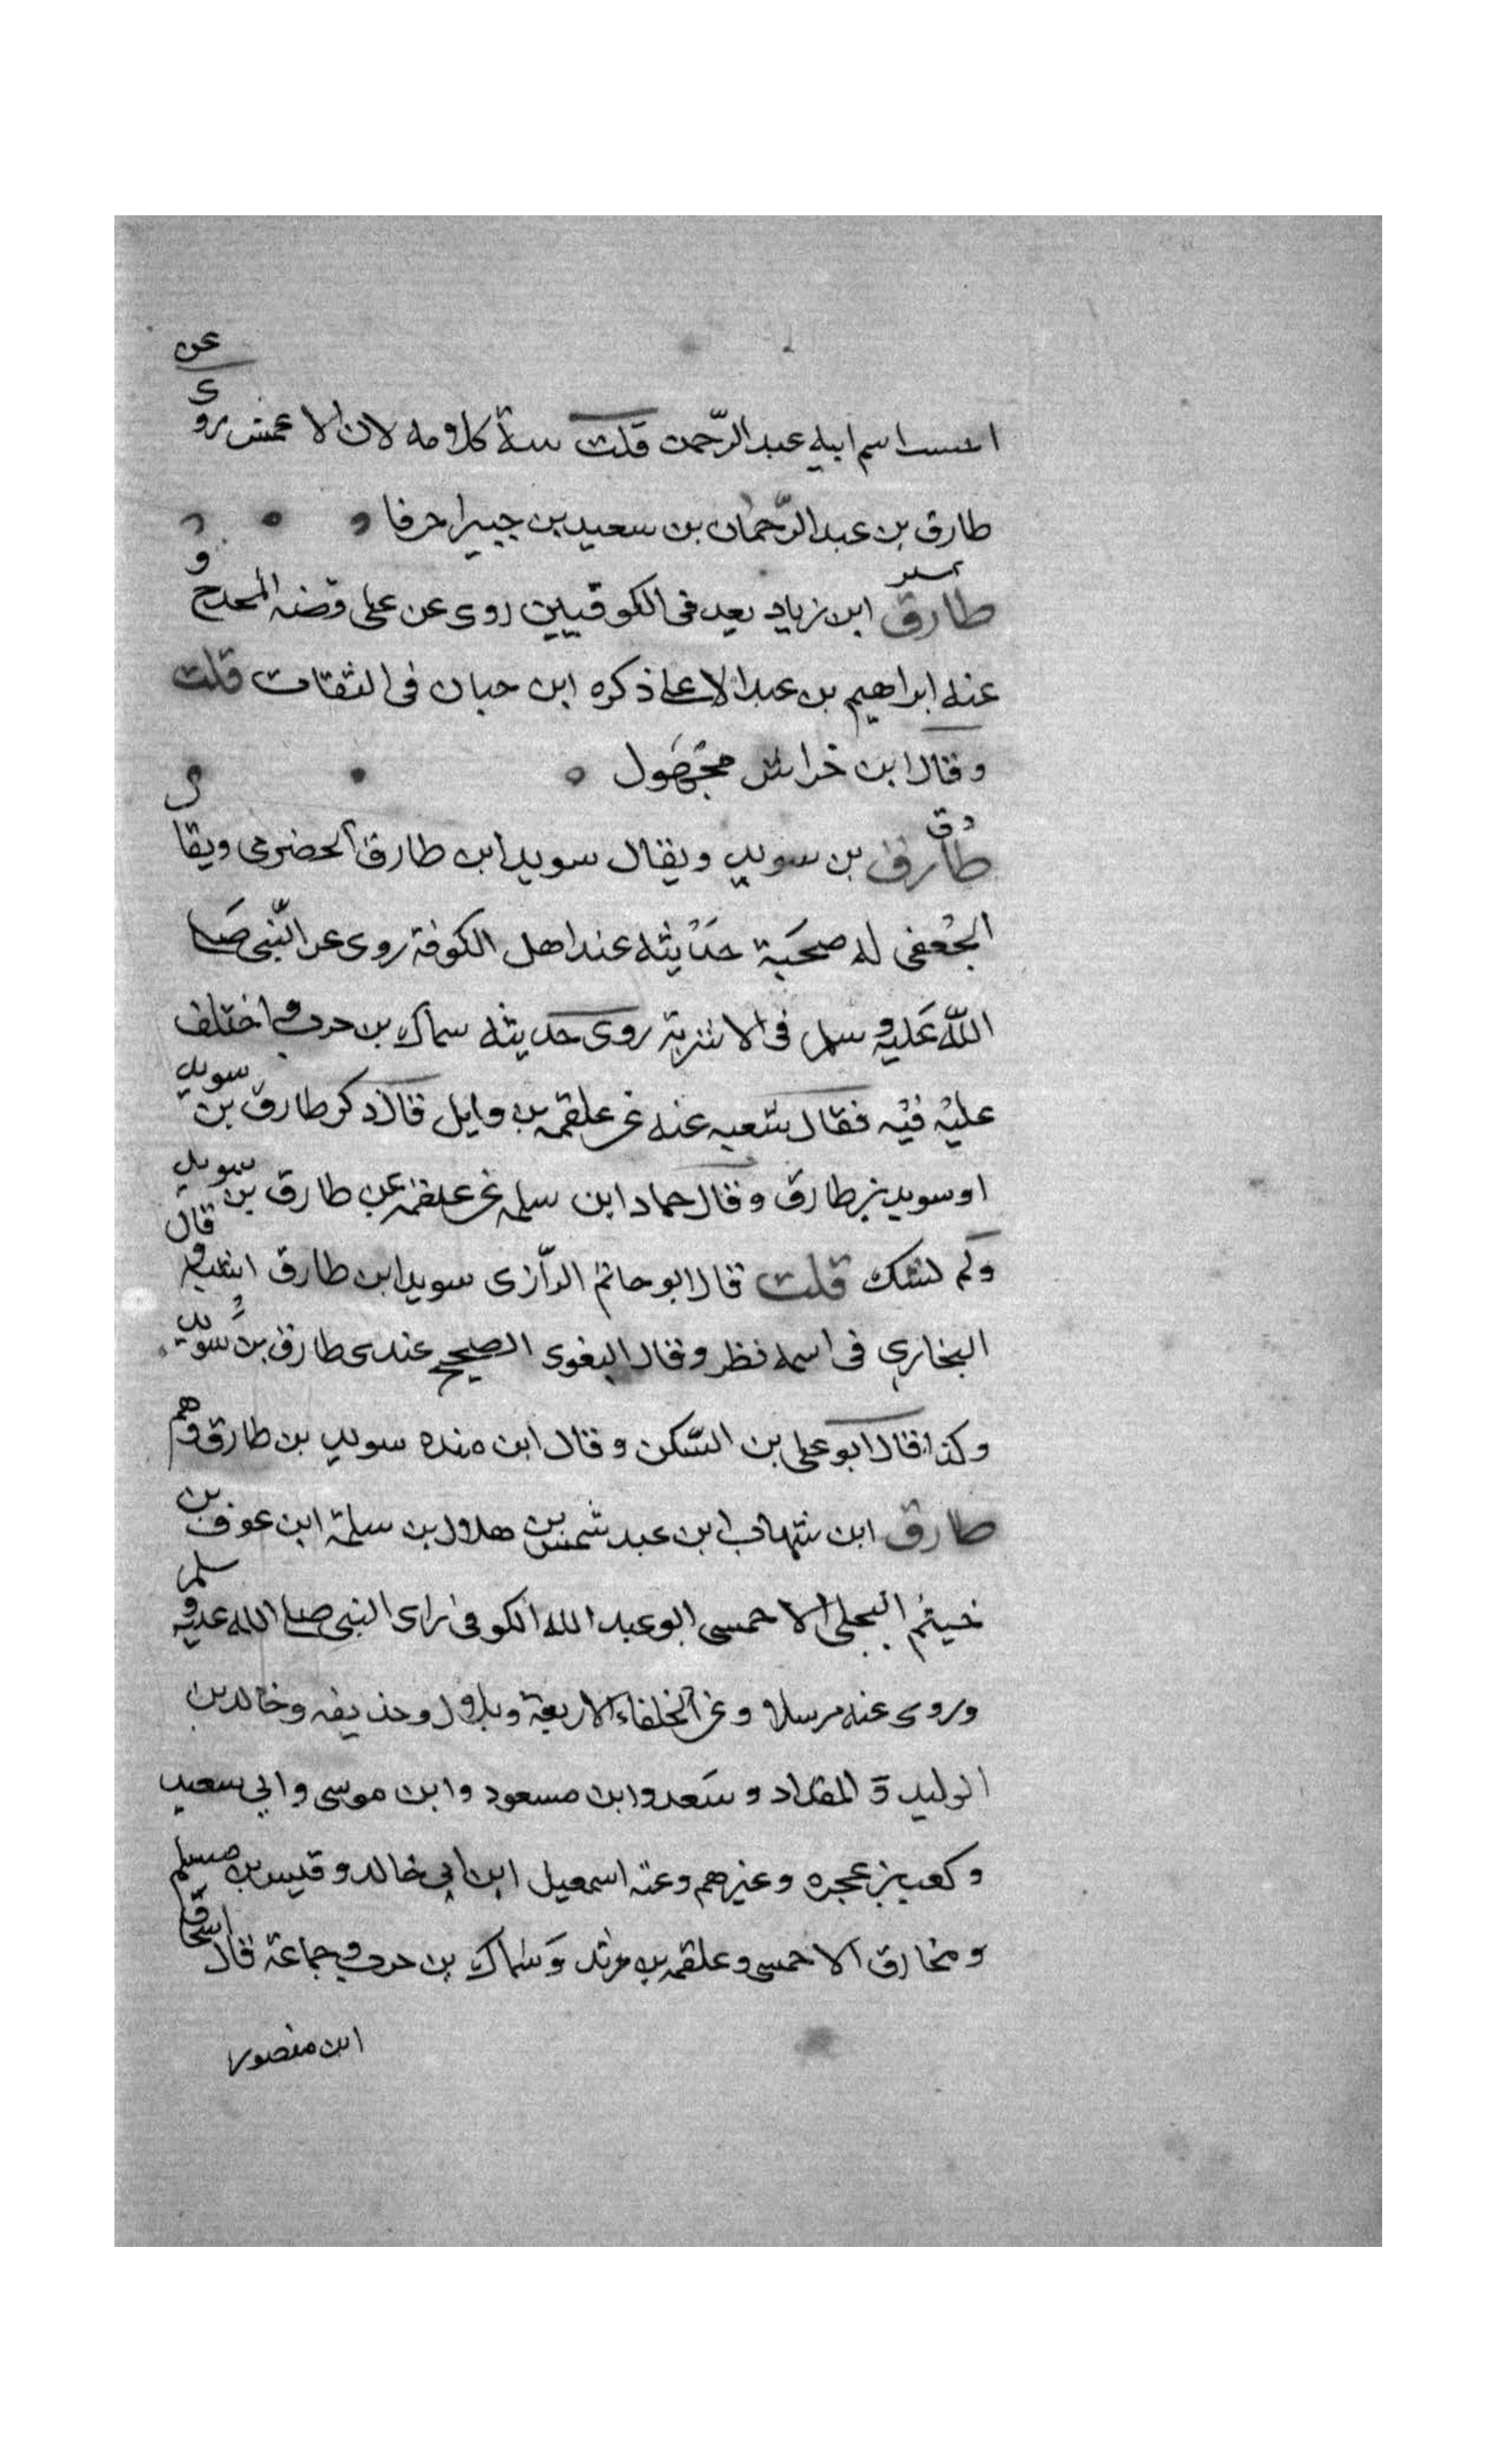 اسم ابيه عبد الرّحمن قلت كلامه لان الاعمش روى عن
طارق بن عبد الرّحمان بن سعيد بن جبير احرفا
طارق ابن زياد يعد فى الكوفيين روى عن على قصه المخدج و
عنه ابراهيم بن عبد الاعلى ذكره ابن حبان فى الثقات قلت
وقال ابن خراش مجهول
د ق
طارق بن سويد ويقال سويد ابن طارق الحضرمى ويقال
الجعفى له صحبة حديثه عند اهل الكوفة روى عن النّبى صلى
اللّه عليه وسلم فى الاشربة روى حديثه سماك بن حرب واختلف
عليه فيه فقال شعبه عنه عن علقمه بن وايل قال ذكر طارق بن سويد
او سويد بن طارق وقال حماد ابن سلمه عن علقمه عن طارق بن سويد
ولم يشك قلت قال ابو حاتم الرّازى سويد ابن طارق اشبه وقال
البخاري فى اسمه نظر وقال البغوى الصحيح عندى طارق بن سويد
وكذا قال ابو على بن السّكن وقال ابن منده سويد بن طارق وهم
طارق ابن شهاب ابن عبد شمس بن هلال بن سلمة ابن عوف بن
خيثم البجلى الاحمسى ابو عبد الله الكوفى راى النبى صلى الله عليه وسلم
وروى عنه مرسلا وعن الخلفاء الاربعة وبلال وحذيفه وخالد بن
الوليد و المقداد وسعد وابن مسعود وابن موسى وابي سعيد
وكعب بن عجره وغيرهم وعنه اسمعيل ابن ابي خالد وقيس بن مسلم
ومخارق الاحمسى وعلقمه بن مرثد وسماك بن حرب وجماعة قال اسحاق
ابن منصور